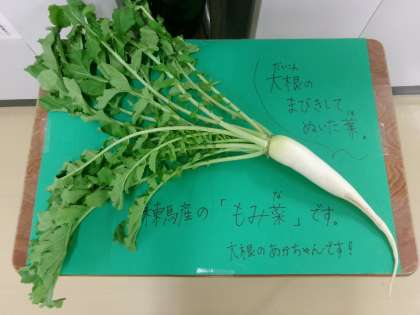 だいこん
大根の
まびきして
ぬいた葉。
練馬産の「もみ菜」です。
な
大根のあかちゃんです!